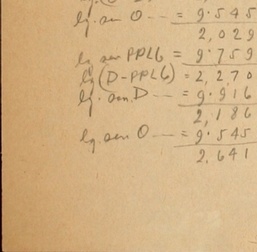 lg. sen O --- = 9.545
2,029
lg sen PPL6 = 9.759
lg (D-PPL6) = 2,270
lg. sen D --- = 9.916
2,186
lg. sen O --- = 9.545
2,641